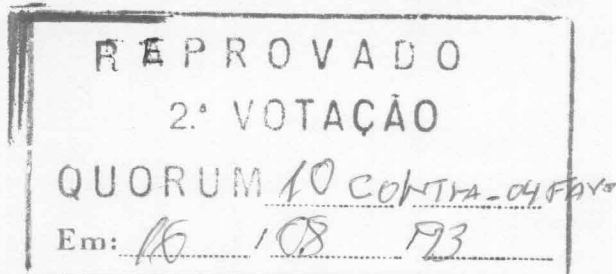 REPROVADO
2.ª VOTAÇÃO
QUORUM 10 CONTRA - 04 FAVO
Em: 16 / 08 / 93